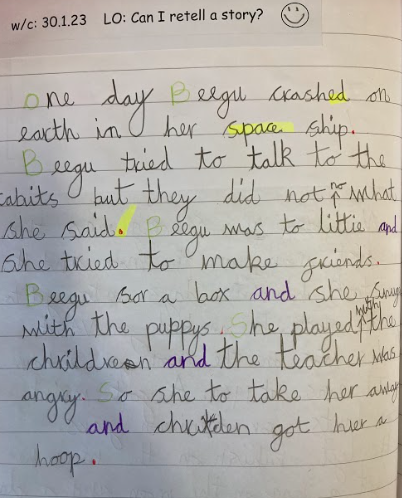 w/c: 30.1.23 LO: Can I retell a story?
One day Beegu crashed on
earth in her space ship.
Beegu tried to talk to the
rabits but they did not no what
she said. Beegu was to little and
she tried to make friends.
Beegu sor a box and she
with the puppys. She played with the
children and the teacher was
angry. So she to take her away
and children got huer a
hoop.